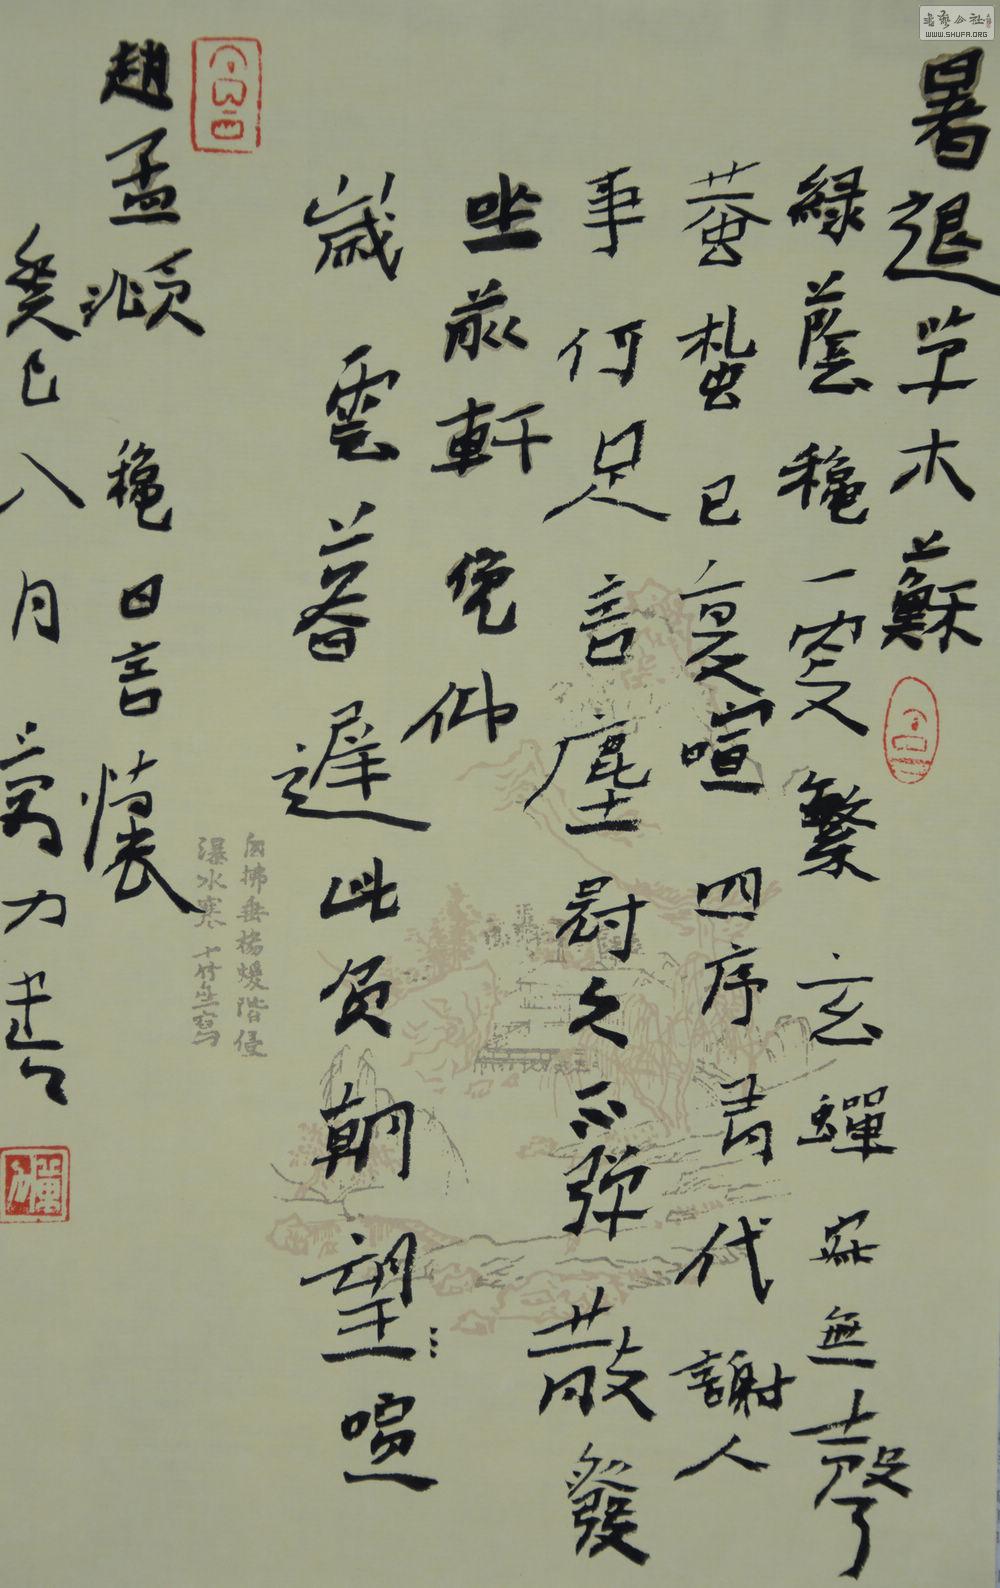 書藝公社
WWW.SHUFA.ORG
暑退草木蘇
綠蔭穐一变繁玄蟬寂無聲
蛰已复喧四序青代謝人
事何足言塵冠久不彈散發
坐前軒俛仰
歲雲暮遲此負朝望喧
趙孟頫 穐日言懷
癸巳八月 万力書
拂垂楊煖階侵
瀑水寒 十竹生寫